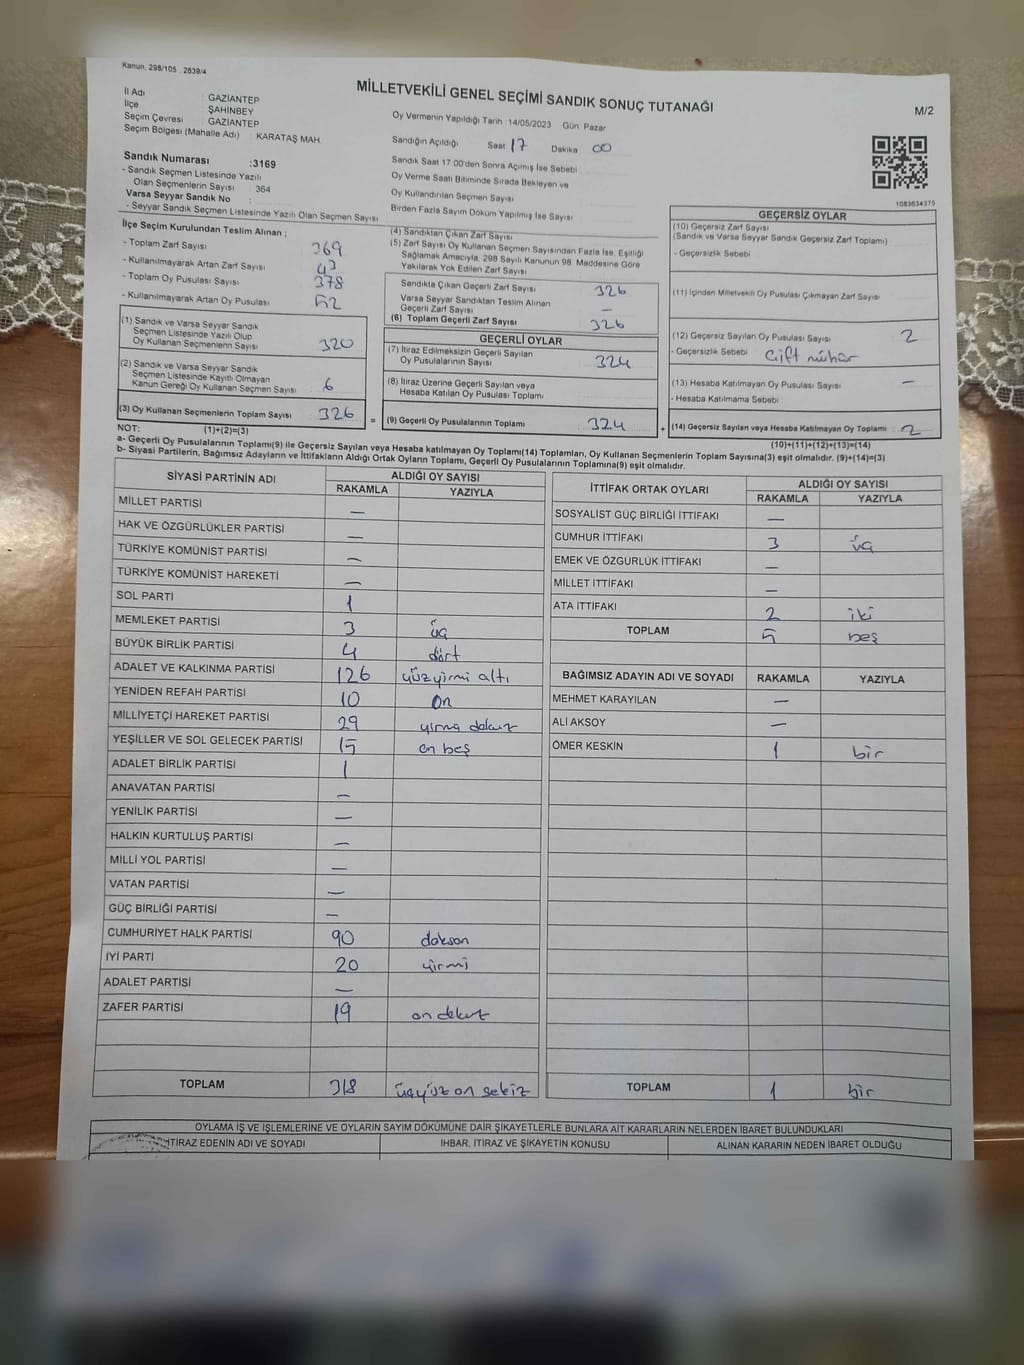 Kanun. 298/105 . 2839/4
MİLLETVEKİLİ GENEL SEÇİMİ SANDIK SONUÇ TUTANAĞI
M/2
İl Adı : GAZİANTEP
İlçe : ŞAHİNBEY
Seçim Çevresi : GAZİANTEP
Seçim Bölgesi (Mahalle Adı) : KARATAŞ MAH
Oy Vermenin Yapıldığı Tarih :14/05/2023 Gün: Pazar
Sandığın Açıldığı Saat 17 Dakika 00
Sandık Saat 17:00'den Sonra Açımış İse Sebebi
Oy Verme Saati Bitiminde Sırada Bekleyen ve
Oy Kullandırılan Seçmen Sayısı
Birden Fazla Sayım Döküm Yapılmış İse Sayısı
1083634375
Sandık Numarası :3169
- Sandık Seçmen Listesinde Yazılı
Olan Seçmenlerin Sayısı 364
Varsa Seyyar Sandık No :
- Seyyar Sandık Seçmen Listesinde Yazılı Olan Seçmen Sayısı
İlçe Seçim Kurulundan Teslim Alınan ;
- Toplam Zarf Sayısı 369
- Kullanılmayarak Artan Zarf Sayısı 43
- Toplam Oy Pusulası Sayısı 378
- Kullanılmayarak Artan Oy Pusulası 52
(1) Sandık ve Varsa Seyyar Sandık
Seçmen Listesinde Yazılı Olup
Oy Kullanan Seçmenlerin Sayısı 320
(2) Sandık ve Varsa Seyyar Sandık
Seçmen Listesinde Kayıtlı Olmayan
Kanun Gereği Oy Kullanan Seçmen Sayısı 6
(3) Oy Kullanan Seçmenlerin Toplam Sayısı 326 =
(4) Sandıktan Çıkan Zarf Sayısı
(5) Zarf Sayısı Oy Kullanan Seçmen Sayısından Fazla İse, Eşitliği
Sağlamak Amacıyla, 298 Sayılı Kanunun 98. Maddesine Göre
Yakılarak Yok Edilen Zarf Sayısı
Sandıkta Çıkan Geçerli Zarf Sayısı 326
Varsa Seyyar Sandıktan Teslim Alınan
Geçerli Zarf Sayısı –
(6) Toplam Geçerli Zarf Sayısı 326
GEÇERLİ OYLAR
(7) İtiraz Edilmeksizin Geçerli Sayılan
Oy Pusulalarının Sayısı 324
(8) İtiraz Üzerine Geçerli Sayılan veya
Hesaba Katılan Oy Pusulası Toplamı
(9) Geçerli Oy Pusulalarının Toplamı 324 +
GEÇERSİZ OYLAR
(10) Geçersiz Zarf Sayısı
(Sandık ve Varsa Seyyar Sandık Geçersiz Zarf Toplamı)
- Geçersizlik Sebebi
(11) İçinden Milletvekili Oy Pusulası Çıkmayan Zarf Sayısı
(12) Geçersiz Sayılan Oy Pusulası Sayısı 2
- Geçersizlik Sebebi Çift mühür
(13) Hesaba Katılmayan Oy Pusulası Sayısı –
- Hesaba Katılmama Sebebi
(14) Geçersiz Sayılan veya Hesaba Katılmayan Oy Toplamı 2
NOT: (1)+(2)=(3)
(10)+(11)+(12)+(13)=(14)
a- Geçerli Oy Pusulalarının Toplamı(9) ile Geçersiz Sayılan veya Hesaba katılmayan Oy Toplamı(14) Toplamları, Oy Kullanan Seçmenlerin Toplam Sayısına(3) eşit olmalıdır. (9)+(14)=(3)
b- Siyasi Partilerin, Bağımsız Adayların ve İttifakların Aldığı Ortak Oyların Toplamı, Geçerli Oy Pusulalarının Toplamına(9) eşit olmalıdır.
SİYASİ PARTİNİN ADI ALDIĞI OY SAYISI
RAKAMLA YAZIYLA
MİLLET PARTİSİ –
HAK VE ÖZGÜRLÜKLER PARTİSİ –
TÜRKİYE KOMÜNİST PARTİSİ –
TÜRKİYE KOMÜNİST HAREKETİ –
SOL PARTİ 1
MEMLEKET PARTİSİ 3 üç
BÜYÜK BİRLİK PARTİSİ 4 dört
ADALET VE KALKINMA PARTİSİ 126 yüzyirmi altı
YENİDEN REFAH PARTİSİ 10 on
MİLLİYETÇİ HAREKET PARTİSİ 29 yirmi dokuz
YEŞİLLER VE SOL GELECEK PARTİSİ 15 on beş
ADALET BİRLİK PARTİSİ 1
ANAVATAN PARTİSİ –
YENİLİK PARTİSİ –
HALKIN KURTULUŞ PARTİSİ –
MİLLİ YOL PARTİSİ –
VATAN PARTİSİ –
GÜÇ BİRLİĞİ PARTİSİ –
CUMHURİYET HALK PARTİSİ 90 doksan
İYİ PARTİ 20 yirmi
ADALET PARTİSİ –
ZAFER PARTİSİ 19 on dokuz
TOPLAM 318 üçyüz on sekiz
İTTİFAK ORTAK OYLARI ALDIĞI OY SAYISI
RAKAMLA YAZIYLA
SOSYALİST GÜÇ BİRLİĞİ İTTİFAKI –
CUMHUR İTTİFAKI 3 üç
EMEK VE ÖZGÜRLÜK İTTİFAKI –
MİLLET İTTİFAKI –
ATA İTTİFAKI 2 iki
TOPLAM 5 beş
BAĞIMSIZ ADAYIN ADI VE SOYADI RAKAMLA YAZIYLA
MEHMET KARAYILAN –
ALİ AKSOY –
ÖMER KESKİN 1 bir
TOPLAM 1 bir
OYLAMA İŞ VE İŞLEMLERİNE VE OYLARIN SAYIM DÖKÜMÜNE DAİR ŞİKAYETLERLE BUNLARA AİT KARARLARIN NELERDEN İBARET BULUNDUKLARI
İTİRAZ EDENİN ADI VE SOYADI İHBAR, İTİRAZ VE ŞİKAYETİN KONUSU ALINAN KARARIN NEDEN İBARET OLDUĞU